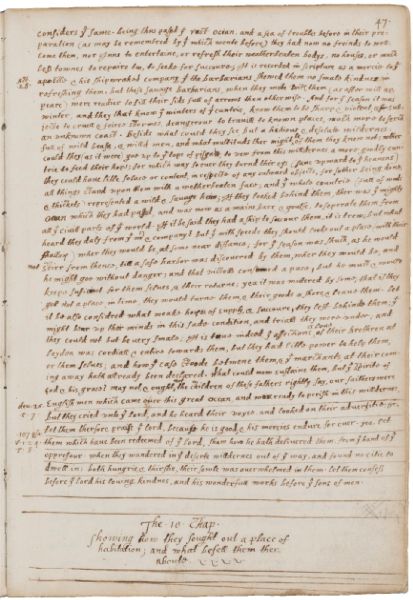 47.
considers ye same. Being thus passed ye vast ocean, and a sea of troubles before in their pre-
paration (as may be remembred by yt which wente before) they had now no friends to wel-
come them, nor inns to entertaine, or refresh their weatherbeaten bodys, no houses, or much
less townes to repaire too, to seeke for succoure; It is recorded in scripture as a mercie to ye
Act. 28.
apostle & his shipwraked company, yt the barbarians shewed them no smale kindnes in
refreshing them, but these savage barbarians, when they mette with them (as after will ap-
peare) were readier to fill their sids full of arrows then otherwise. And for ye season it was
winter, and they that know ye winters of yt countrie, know them to be sharp & violent & sub-
jecte to cruell & feirce stormes, dangerous to travill to known places, much more to serch
an unknown coast. Besids what could they see but a hidious & desolate wildernes,
full of wild beasts, & wild men, and what multituds ther might be of them they knew not; nether
could they (as it were) goe up to ye tope of pisgah, to vew from this willdernes a more goodly cuntrie
to feed their hops; for which way soever they turnd their eys (save upward to ye heavens)
they could have litle solace or content, in respecte of any outward objects, for sumer being done,
all things stand upon them with a wetherbeaten face; and ye whole countrie (full of woods
& thickets) represented a wild & savage heiw; If they looked behind them, ther was ye mighty
ocean which they had passed, and was now as a maine barr, & goulfe, to seperate them from
all ye civill parts of ye world. If it be said they had a ship to sucour them, it is trew; but what
heard they daly from ye mr & company? but yt with speede they should looke out a place, with their
shallop, wher they would be, at some near distance; for ye season was shuch, as he would
not stirr from thence, till a safe harbor was discovered by them, wher they would be, and
he might goe without danger; and that victells consumed apace, but he must & would
keepe sufficient for them selves, & their returne; yea it was muttered by some, that if they
gott not a place in time, they would turne them, & their goods a shore, & leave them. Let
it be also considred what weake hopes of supply, & succoure, they left behinde them; yt
might bear up their minds in this sade condition, and trialls they were under; and
they could not but be very smale; It is true indeed, ye affections & love of their brethren at
Leyden was cordiall & entire towards them, but they had litle power to help them,
or them selves; and how ye case stoode betweene them, & ye marchants, at their com-
ing away hath allready been declared. What could now sustaine them, but ye spirite of
God & his grace? May not & ought not the children of these fathers rightly say, our faithers were
Englishmen which came over this great ocean, and were ready to perish in this willdernes,
deu. 26. 5. 7.
but they cried unto ye Lord, and he heard their voyce, and looked on their adversitie, &c.
Let them therfore praise ye Lord, because he is good, & his mercies endure for ever. yea, let
107 psa: v. 1. 2. 4. 5. 8.
them which have been redeemed of ye Lord, shew how he hath delivered them, from ye hand of ye
oppressour. when they wandered in ye deserte willdernes out of ye way, and found no citie to
dwell in; both hungrie, & thirstie, their sowle was overwhelmed in them. let them confess
before ye Lord his loving kindnes, and his wonderfull works before ye sons of men.
The 10. Chap.
Showing how they sought out a place of
habitation; and what befell them ther
aboute.